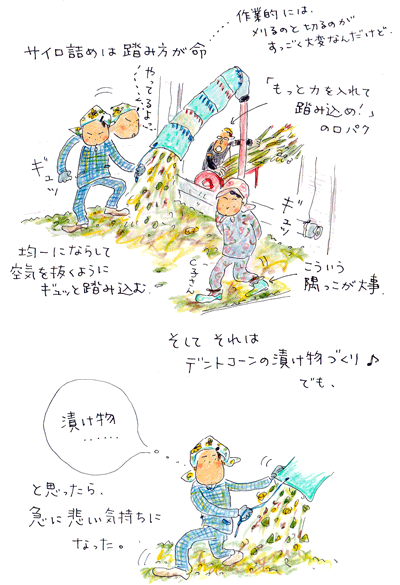 作業的には、
刈るのと切るのが
すっごく大変なんだけど.
サイロ詰めは踏み方が命
やってるよっ
「もっと力を入れて
踏み込め!」
の口パク
ギュッ
ギュッ
均一にならして
空気を抜くように
ギュッと踏み込む.
と子さん
こういう
隅っこが大事.
そして それは
デントコーンの漬け物づくり♪
でも、
漬け物
……
と思ったら、
急に悲い気持ちに
なった。